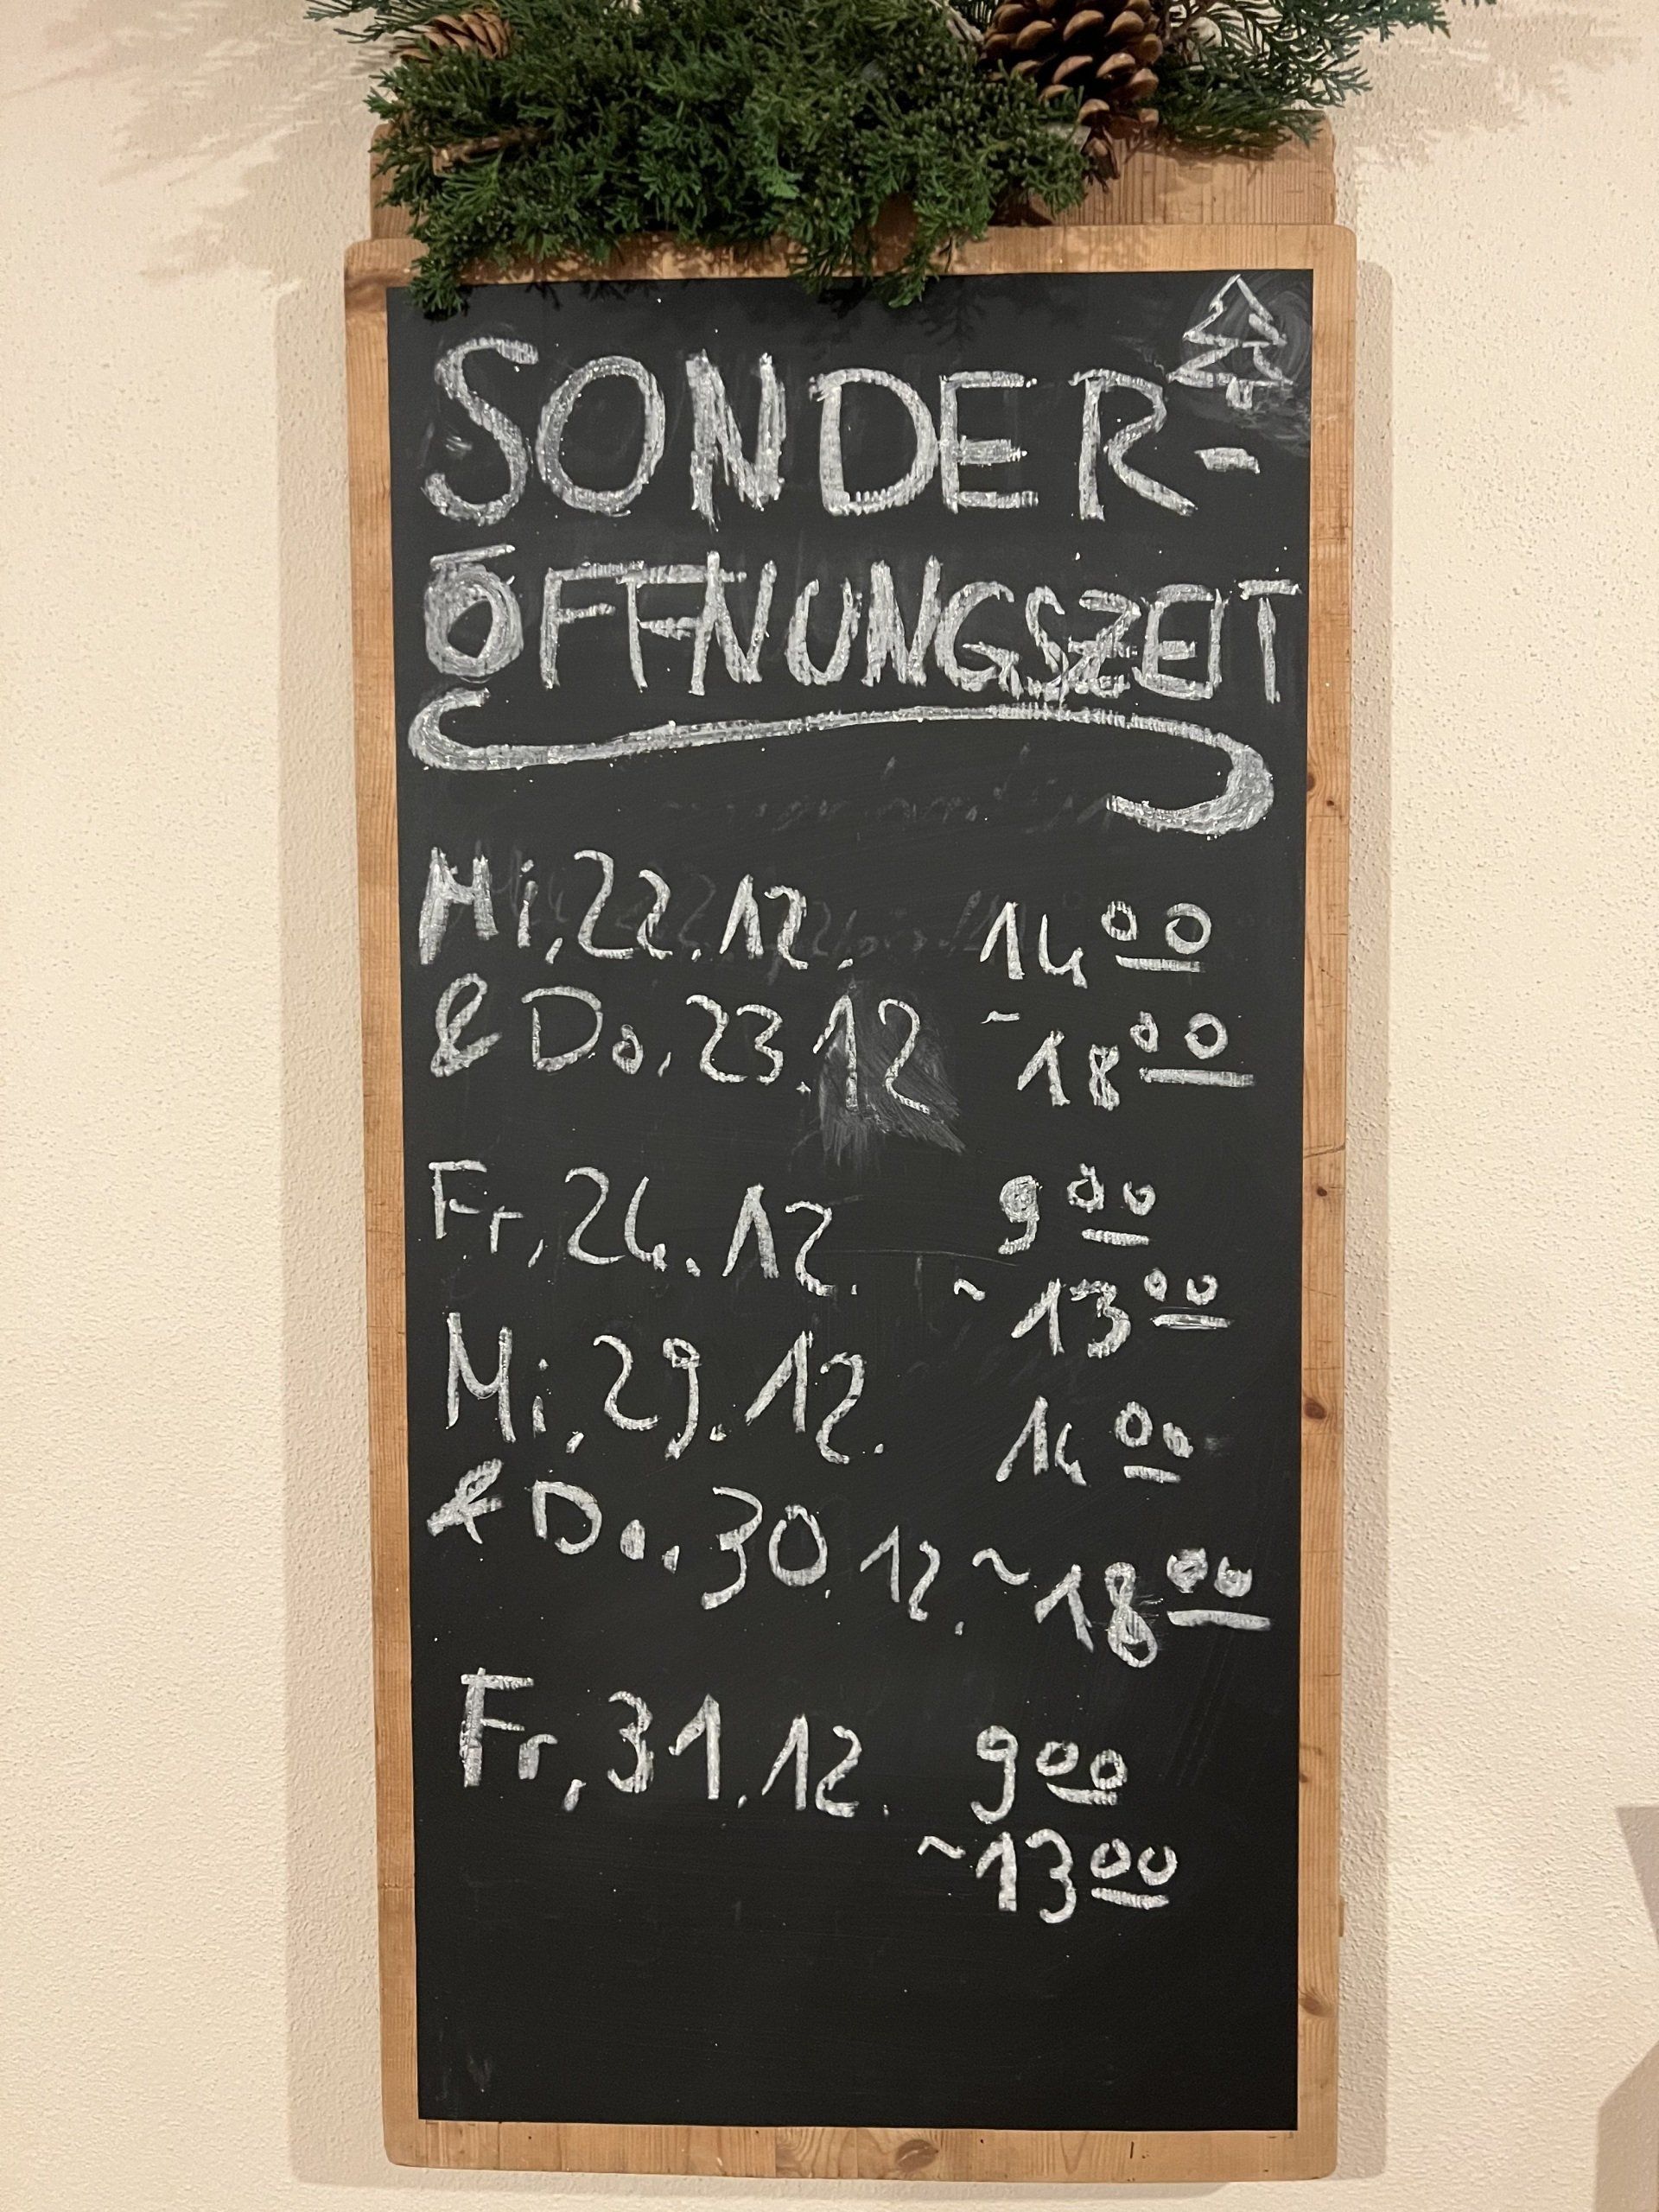 SONDER-
ÖFFNUNGSZEIT
Mi, 22.12. 14 00
& Do, 23.12 ~ 18 00
Fr, 24.12. 9 00
~ 13 00
Mi, 29.12. 14 00
& Do, 30.12. ~ 18 00
Fr, 31.12. 9 00
~ 13 00